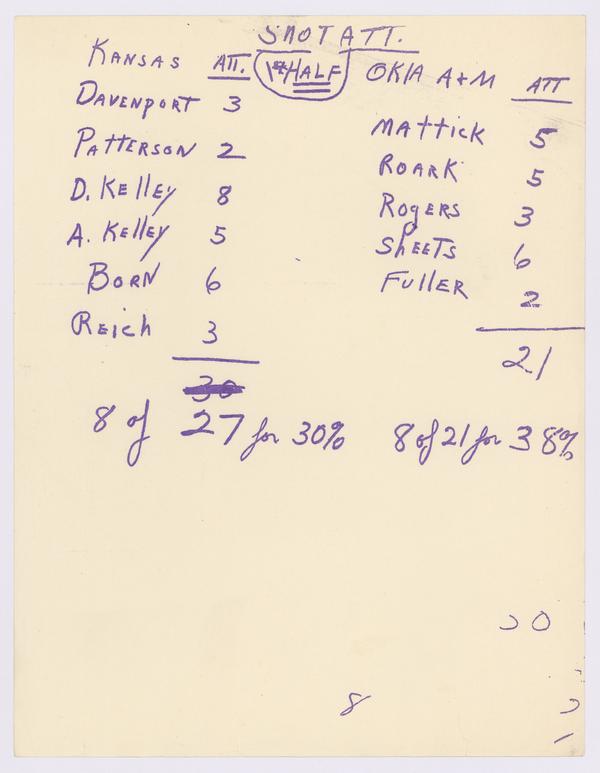 SHOT ATT.
1st HALF
KANSAS ATT.
DAVENPORT 3
PATTERSON 2
D. KELLEY 8
A. KELLEY 5
BORN 6
REICH 3
30
8 of 27 for 30%
OKLA A+M ATT
MATTICK 5
ROARK 5
ROGERS 3
SHEETS 6
FULLER 2
21
8 of 21 for 38%
8